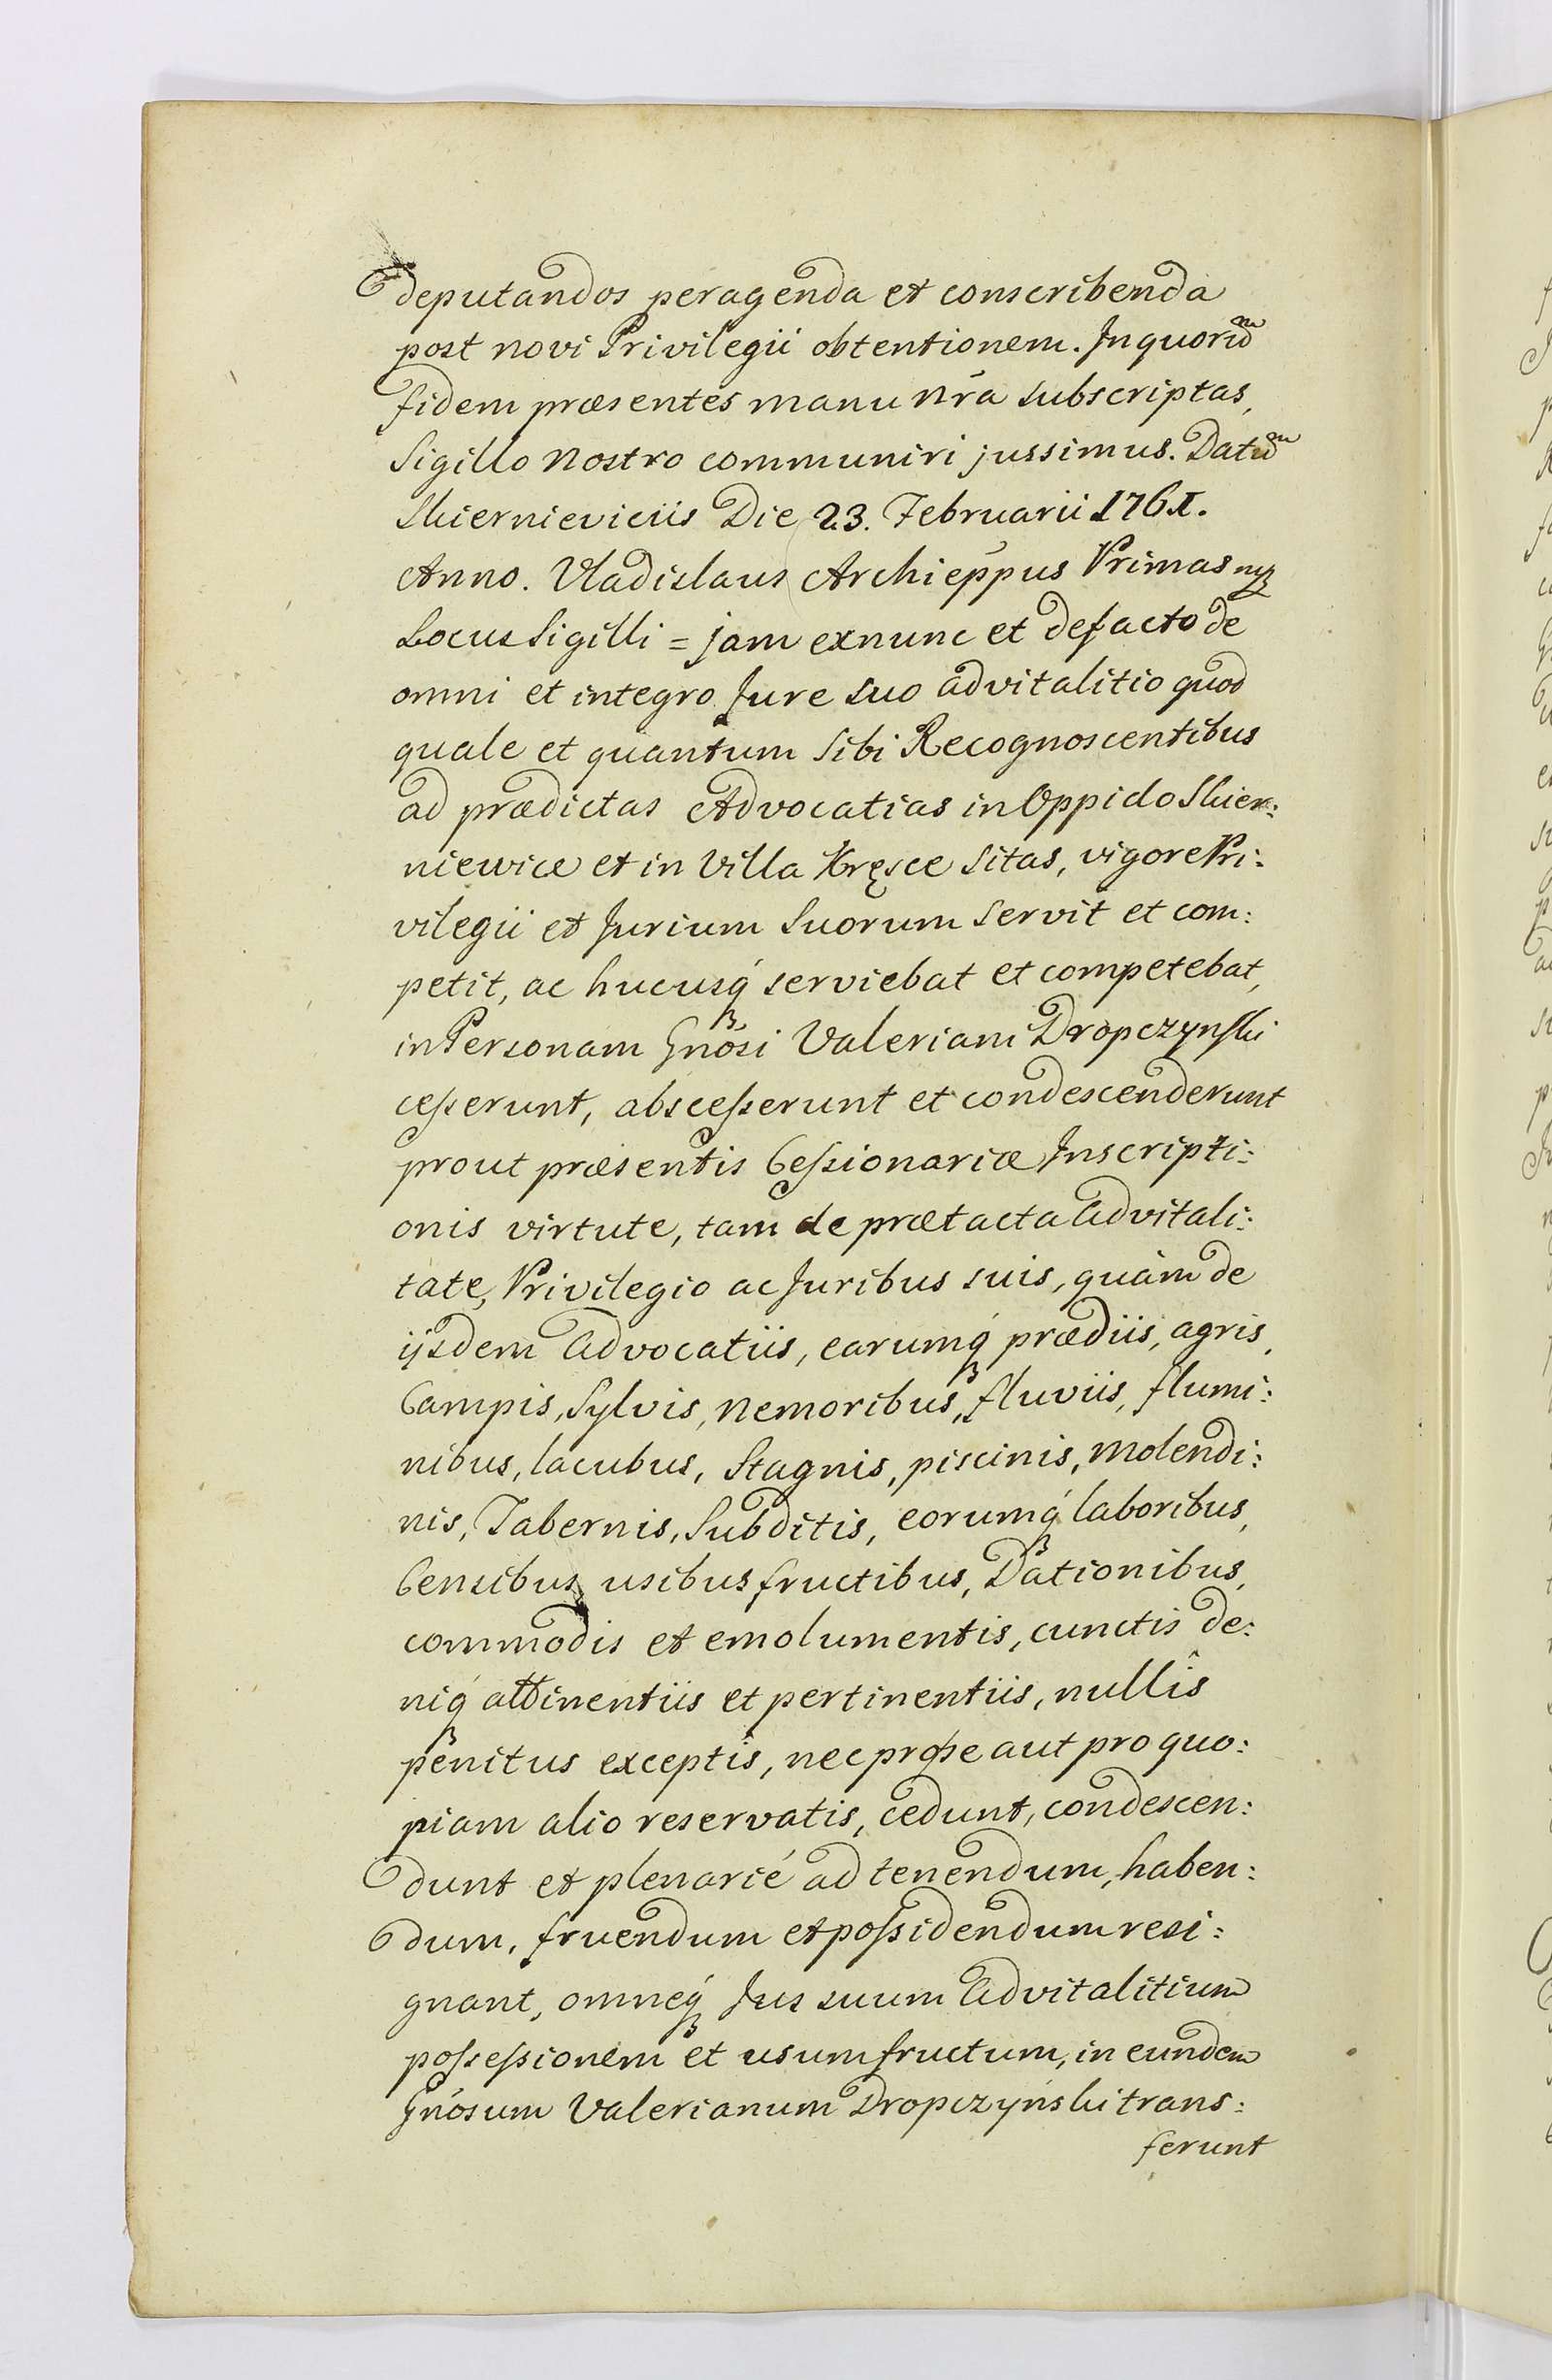 deputandos peragenda et conscribenda
post novi Privilegii obtentionem. In quorũ
fidem præsentes manu nrã subscriptas,
Sigillo Nostro communiri jussimus. Datũ
Skierniewiciis Die 23. Februarii 1761.
Anno. Vladislaus Archieppus Primas mpp
Locus Sigilli = jam exnunc et defacto de
omni et integro Jure suo advitalitio quod
quale et quantum Sibi Recognoscentibus
ad prædictas Advocatias in Oppido Skier:
niewice et in Villa Kręsce Sitas, vigore Pri:
vilegii et Jurium Suorum Servit et com:
petit, ac hucusq́ serviebat et competebat,
in Personam Gnosi Valeriani Dropczynski
cesserunt, abscesserunt et condescenderunt
prout præsentis Cessionariæ Inscripti:
onis virtute, tam de prætacta Advitali:
tate, Privilegio ac Juribus suis, quàm de
ijsdem Advocatiis, earumq́ prædiis, agris,
Campis, Sylvis, Nemoribus, fluviis, flumi:
nibus, lacubus, Stagnis, piscinis, Molendi:
nis, Tabernis, Subditis, eorumq́ laboribus,
Censibus, usibusfructibus, Dationibus,
commodis et emolumentis, cunctis de:
niq́ attinentiis et pertinentiis, nullîs
penitus exceptîs, nec pro se aut pro quo:
piam alio reservatis, cedunt, condescen:
dunt et plenarié ad tenendum, haben:
dum, fruendum et possidendum resi:
gnant, omneq́ Jus suum Advitalitium
possessionem et usumfructum, in eundem
Gnósum Valerianum Dropczyński trans:
ferunt